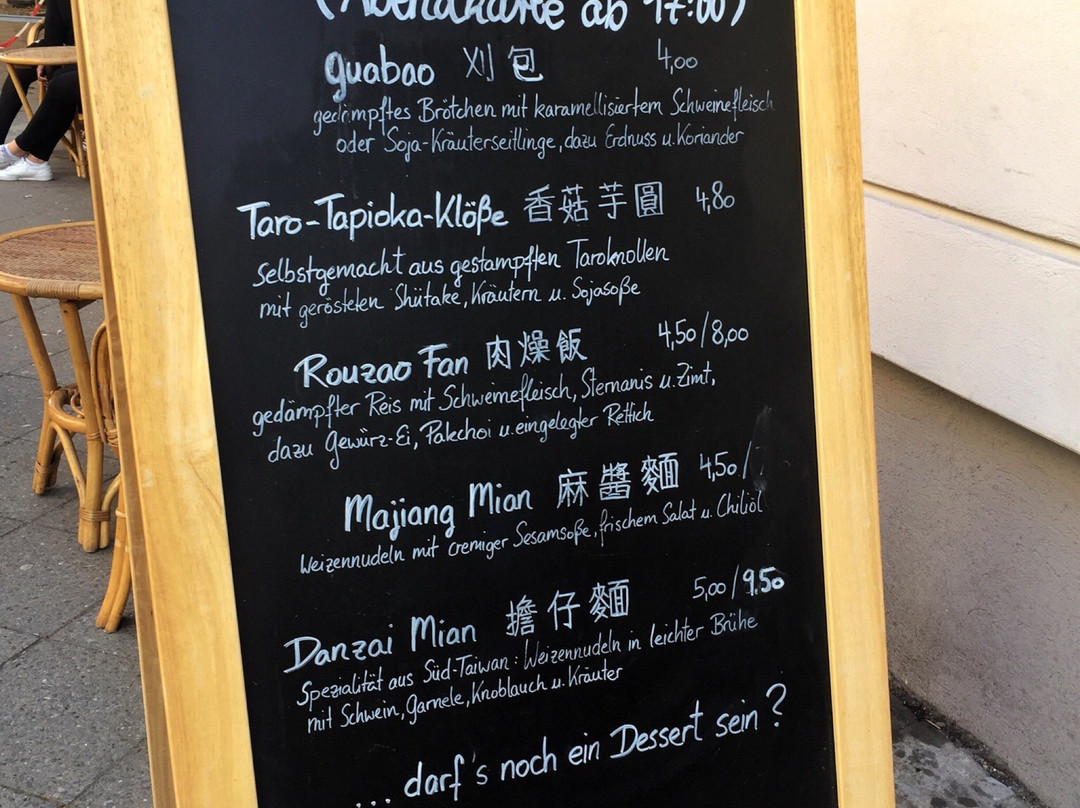 (Abendkarte ab 17:00)
guabao 刈包 4,00
gedämpftes Brötchen mit karamellisiertem Schweinefleisch
oder Soja-Kräuterseitlinge, dazu Erdnuss u. Koriander
Taro-Tapioka-Klöße 香菇芋圓 4,80
selbstgemacht aus gestampften Taroknollen
mit gerösteten Shiitake, Kräutern u. Sojasoße
Rouzao Fan 肉燥飯 4,50/8,00
gedämpfter Reis mit Schweinefleisch, Sternanis u. Zimt,
dazu Gewürz-Ei, Pakchoi u. eingelegter Rettich
Majiang Mian 麻醬麵 4,50/
Weizennudeln mit cremiger Sesamsoße, frischem Salat u. Chiliöl
Danzai Mian 擔仔麵 5,00/9,50
Spezialität aus Süd-Taiwan: Weizennudeln in leichter Brühe
mit Schwein, Garnele, Knoblauch u. Kräuter
... darf's noch ein Dessert sein?